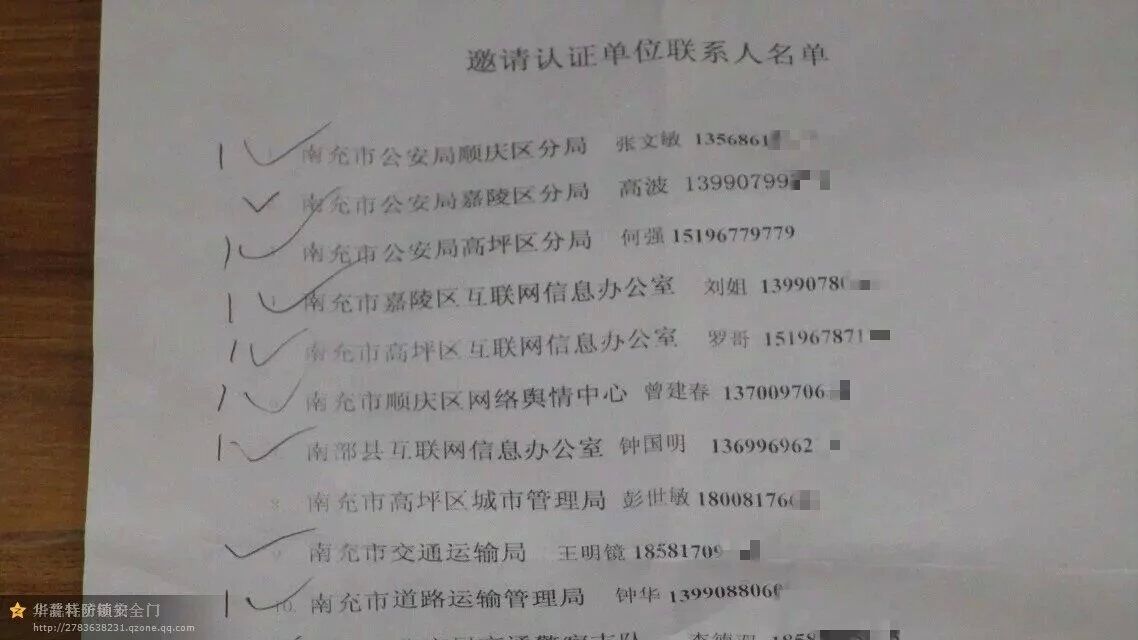 邀请认证单位联系人名单
南充市公安局顺庆区分局 张文敏 1356861
南充市公安局嘉陵区分局 高波 13990799
南充市公安局高坪区分局 何强 15196779779
南充市嘉陵区互联网信息办公室 刘姐 1399078
南充市高坪区互联网信息办公室 罗哥 151967871
南充市顺庆区网络舆情中心 曾建春 137009706
南部县互联网信息办公室 钟国明 136996962
8. 南充市高坪区城市管理局 彭世敏 18008176
9. 南充市交通运输局 王明镜 18581709
10. 南充市道路运输管理局 钟华 1399088060
交通警察支队
http://2783638231.qzone.qq.com